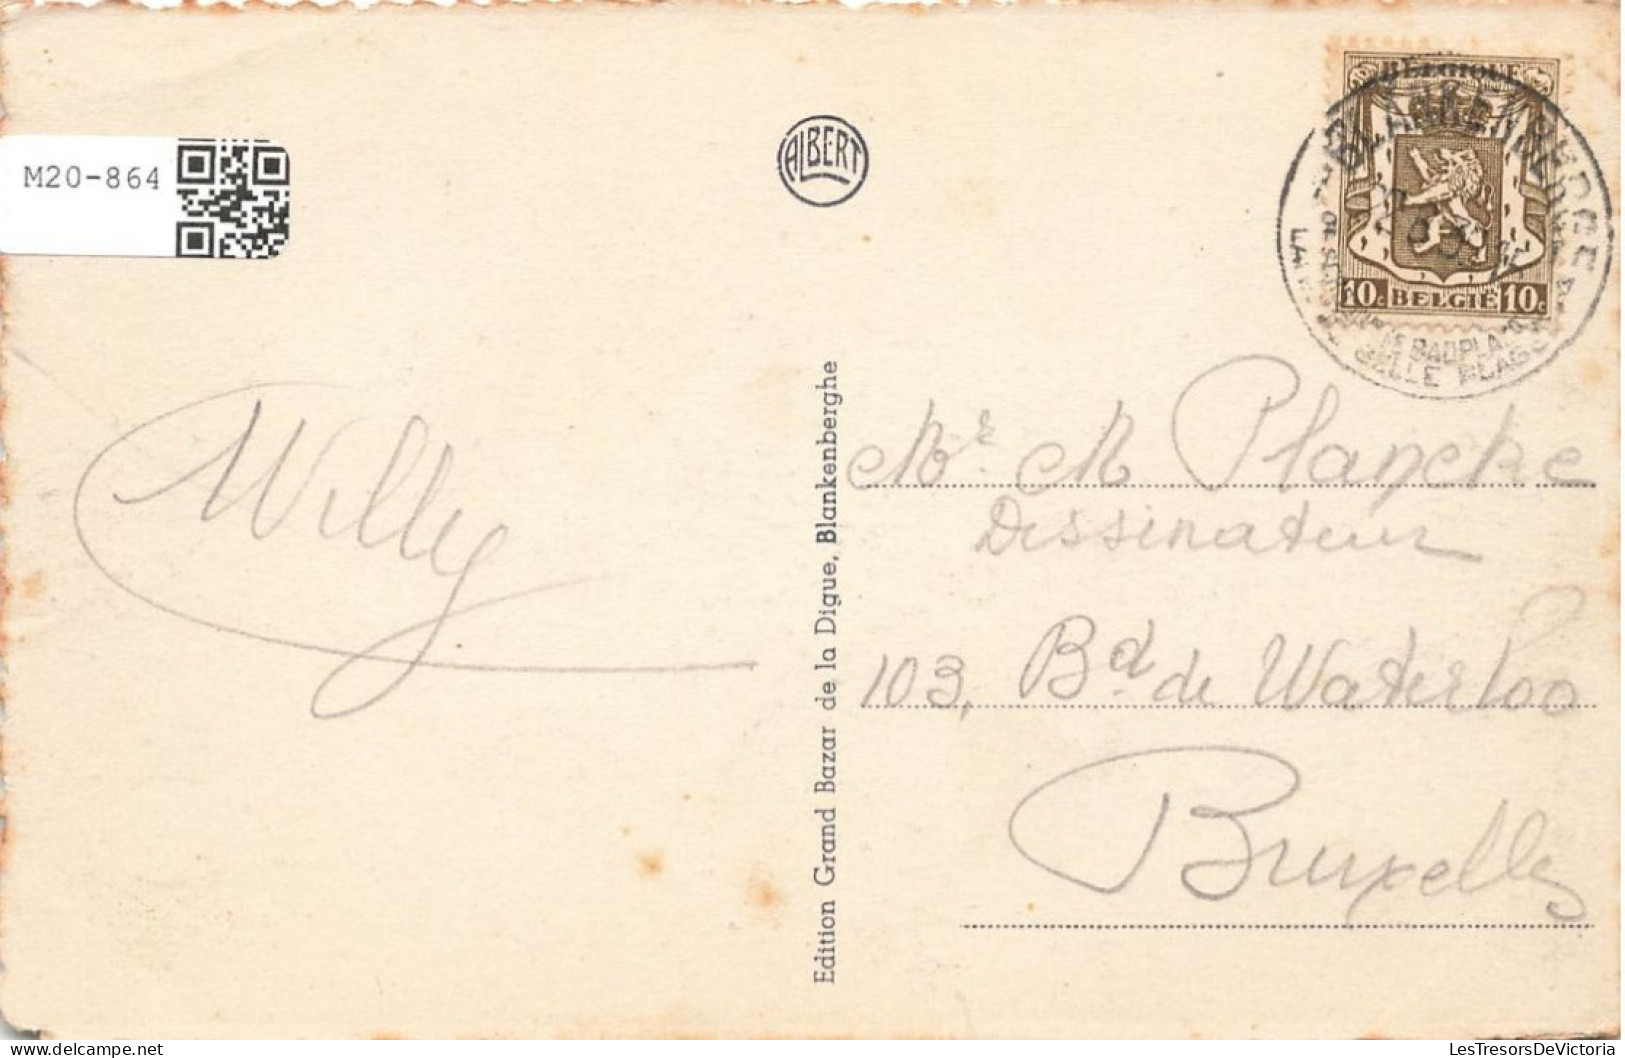 M20-864
ALBERT
BELGIQUE
BLANKENBERGE
10c BELGIË 10c
BADPLA
BELLE PLAGE
Willy
Edition Grand Bazar de la Digue, Blankenberghe
Mr. M Planche
Dessinateur
103, Bd de Waterloo
Bruxelles
LesTresorsDeVictoria